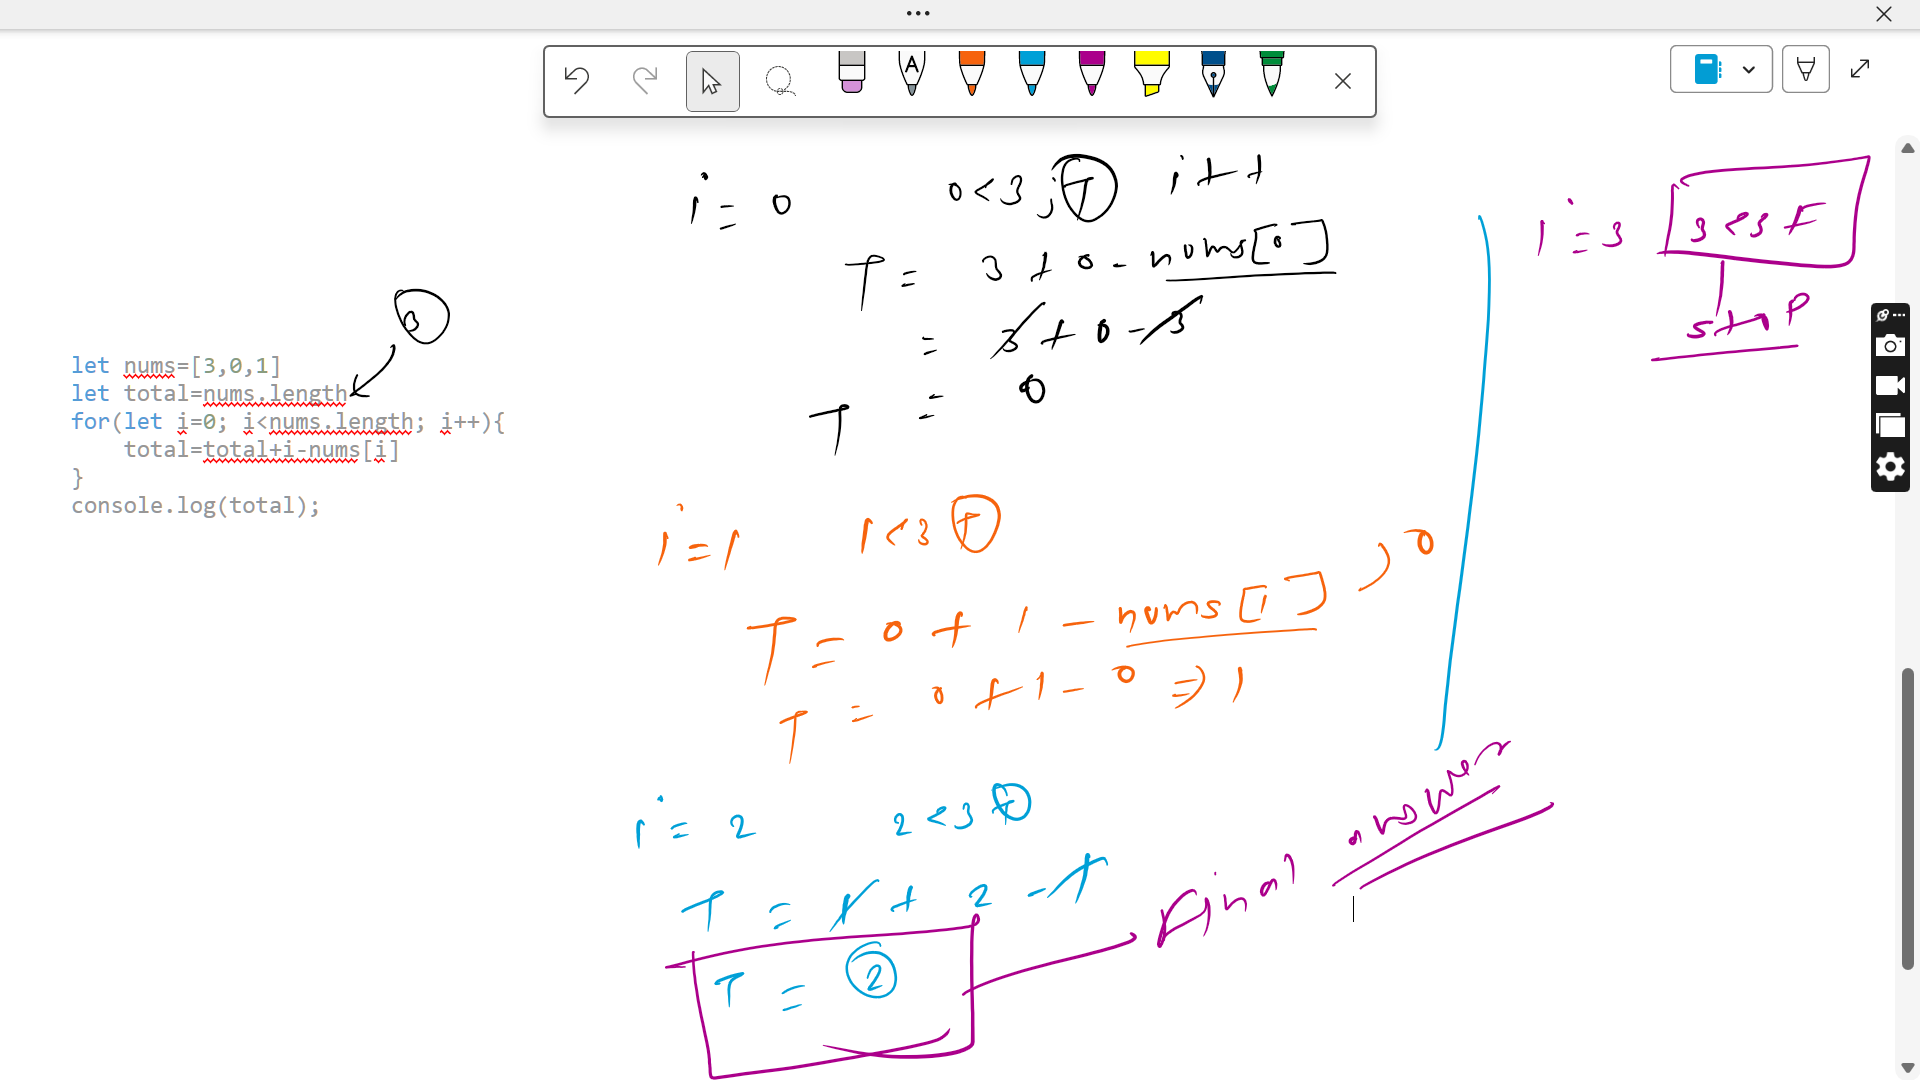 let nums=[3,0,1]
let total=nums.length
for(let i=0; i<nums.length; i++){
total=total+i-nums[i]
}
console.log(total);
3
i = 0 0<3; T i++
T = 3 + 0 - nums[0]
= 3 + 0 - 3
T = 0
i=1 1<3 T
T = 0 + 1 - nums[1] , 0
T = 0 + 1 - 0 => 1
i = 2 2<3 T
T = 1 + 2 - 1
T = 2
Final answer
i=3 3<3 F
stop
A